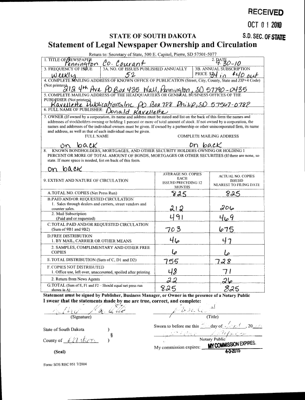 RECEIVED
OCT 01 2010
S.D. SEC. OF STATE
STATE OF SOUTH DAKOTA
Statement of Legal Newspaper Ownership and Circulation
Return to: Secretary of State, 500 E. Capitol, Pierre, SD 57501-5077
1. TITLE OF NEWSPAPER
Pennington Co. Courant
2. DATE
9-30-10
3. FREQUENCY OF ISSUE
Weekly
3A. NO. OF ISSUES PUBLISHED ANNUALLY
52
3B. ANNUAL SUBSCRIPTION PRICE
4. COMPLETE MAILING ADDRESS OF KNOWN OFFICE OF PUBLICATION (Street, City, County, State and ZIP+4 Code) (Not printers)
212 4th Ave PO Box 435 Wall, Pennington, SD 57790-0435
5. COMPLETE MAILING ADDRESS OF THE HEADQUARTERS OF GENERAL BUSINESS OFFICES OF THE PUBLISHER (Not printer)
Ravellette Publications, Inc. PO Box 788 Philip, SD 57567-0788
6. FULL NAME OF PUBLISHER:
Donald Ravellette
7. OWNER (If owned by a corporation, its name and address must be stated and also on the back of this form the names and addresses of stockholders owning or holding 1 percent or more of total amount of stock. If not owned by a corporation, the names and addresses of the individual owners must be given. If owned by a partnership or other unincorporated firm, its name and address, as well as that of each individual must be given.
FULL NAME
COMPLETE MAILING ADDRESS
on back
on back
8. KNOWN BONDHOLDERS, MORTGAGEES, AND OTHER SECURITY HOLDERS OWNING OR HOLDING 1 PERCENT OR MORE OF TOTAL AMOUNT OF BONDS, MORTGAGES OR OTHER SECURITIES (If there are none, so state. If more space is needed, list on back of this form.
on back
9. EXTENT AND NATURE OF CIRCULATION
AVERAGE NO. COPIES EACH ISSUED PRECEDING 12 MONTHS
ACTUAL NO. COPIES ISSUED NEAREST TO FILING DATE
A. TOTAL NO. COPIES (Net Press Run)
825
825
B. PAID AND/OR REQUESTED CIRCULATION
1. Sales through dealers and carriers, street vendors and counter sales.
212
206
2. Mail Subscription (Paid and or requested)
491
469
C. TOTAL PAID AND/OR REQUESTED CIRCULATION (Sum of 9B1 and 9B2)
703
675
D. FREE DISTRIBUTION
1. BY MAIL, CARRIER OR OTHER MEANS
46
47
2. SAMPLES, COMPLIMENTARY AND OTHER FREE COPIES
6
6
E. TOTAL DISTRIBUTION (Sum of C, D1 and D2)
755
728
F. COPIES NOT DISTRIBUTED
1. Office use, left over, unaccounted, spoiled after printing
48
71
2. Return from News Agents
22
26
G. TOTAL (Sum of E, F1 and F2 - Should equal net press run shown in A)
825
825
Statement must be signed by Publisher, Business Manager, or Owner in the presence of a Notary Public
I swear that the statements made by me are true, correct, and complete:
(Signature)
(Title)
State of South Dakota )
Sworn to before me this
County of
)
Notary Public
(Seal)
My commission expires:
MY COMMISSION EXPIRES